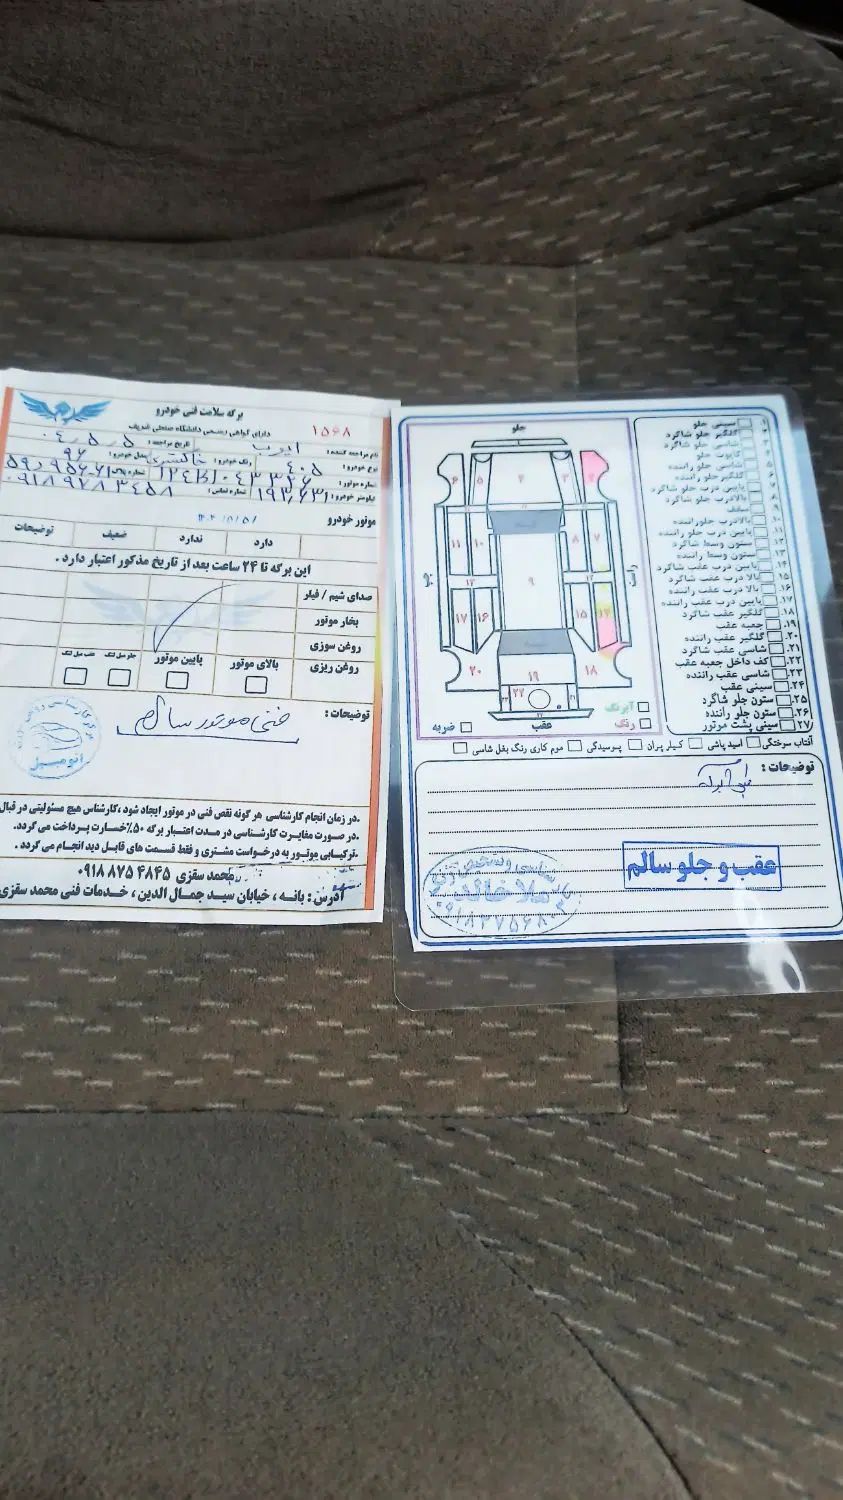 برگه سلامت فنی خودرو
دارای گواهی رسمی دانشگاه صنعتی شریف
۱۵۶۸
نام مراجعه کننده : ایوب
تاریخ مراجعه : ۰۴,۵,۵
نوع خودرو : ۴۰۵
رنگ خودرو : خاکستری
مدل خودرو : ۹۶
شماره موتور :
شماره پلاک :
کیلومتر خودرو : ۱۹۳,۶۳۱
شماره تماس : ۰۹۱۸۹۲۸۳۴۵۸
موتور خودرو
دارد
ندارد
ضعیف
توضیحات
این برگه تا ۲۴ ساعت بعد از تاریخ مذکور اعتبار دارد .
صدای شیم / فیلر
بخار موتور
روغن سوزی
روغن ریزی
بالای موتور
پایین موتور
جلو میل لنگ
عقب میل لنگ
توضیحات :
فنی موتور سالم
اتومبیل
.در زمان انجام کارشناسی هر گونه نقص فنی در موتور ایجاد شود ،کارشناس هیچ مسئولیتی در قبال
.در صورت مغایرت کارشناسی در مدت اعتبار برگه ۵۰٪خسارت پرداخت می گردد.
.ترکیبابی موتور به درخواست مشتری و فقط قسمت های قابل دید انجام می گردد .
محمد سقزی ۰۹۱۸۸۷۵۴۸۴۵
آدرس : بانه ، خیابان سید جمال الدین ، خدمات فنی محمد سقزی
جلو
راست
عقب
۶
۵
۴
۳
۲
۱۱
۱۰
۹
۸
۷
۱۳
۱۲
۱۷
۱۶
۱۵
۱۴
۲۰
۱۹
۱۸
۲۲
آبرنگ
رنگ
ضربه
۱. سینی جلو
۲. گلگیر جلو شاگرد
۳. شاسی جلو شاگرد
۴. کاپوت جلو
۵. شاسی جلو راننده
۶. گلگیر جلو راننده
۷. پایین درب جلو شاگرد
۸. بالادرب جلو شاگرد
۹. سقف
۱۰. بالادرب جلوراننده
۱۱. پایین درب جلو راننده
۱۲. ستون وسط شاگرد
۱۳. ستون وسط راننده
۱۴. پایین درب عقب شاگرد
۱۵. بالا درب عقب شاگرد
۱۶. بالا درب عقب راننده
۱۷. پایین درب عقب راننده
۱۸. گلگیر عقب شاگرد
۱۹. جعبه عقب
۲۰. گلگیر عقب راننده
۲۱. شاسی عقب شاگرد
۲۲. کف داخل جعبه عقب
۲۳. شاسی عقب راننده
۲۴. سینی عقب
۲۵. ستون جلو شاگرد
۲۶. ستون جلو راننده
۲۷. سینی پشت موتور
آفتاب سوختگی
اسید پاشی
کیلر پران
پوسیدگی
موم کاری رنگ بغل شاسی
توضیحات :
عقب و جلو سالم
ملا خالد